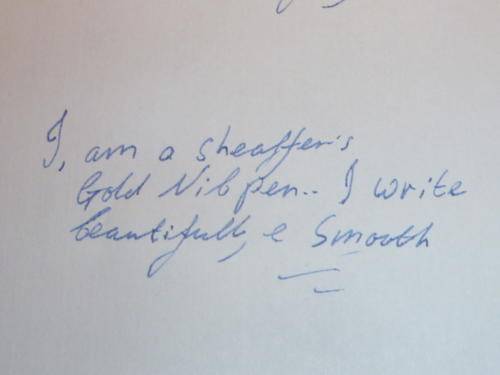 I, am a Sheaffer's
Gold Nib pen.. I write
beautifully e Smooth